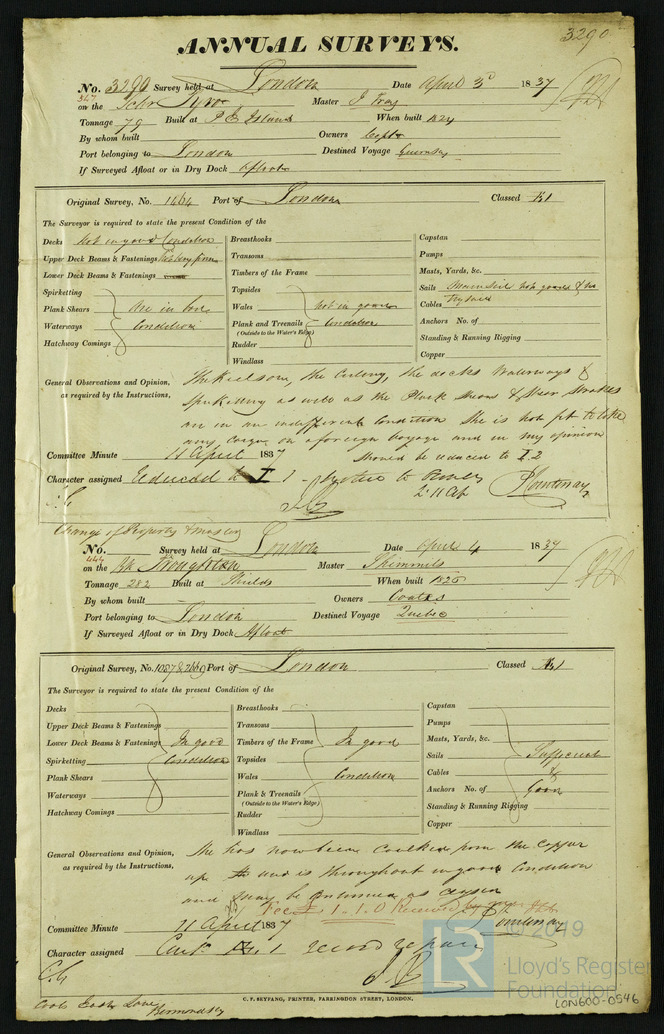 3290
ANNUAL SURVEYS.
No. 3290 Survey held at London Date April 3d 1837
547 on the Schr Tyro Master J Fray
Tonnage 79 Built at P E Island When built 1824
By whom built Owners Capt
Port belonging to London Destined Voyage Guernsey
If Surveyed Afloat or in Dry Dock Afloat
Original Survey, No. 1464 Port of London Classed Æ1
The Surveyor is required to state the present Condition of the
Decks Not in good Condition
Upper Deck Beams & Fastenings
Lower Deck Beams & Fastenings
Spirketting
Plank Shears are in
Waterways Condition
Hatchway Comings
Breasthooks
Transoms
Timbers of the Frame
Topsides
Wales not in good
Plank and Treenails Condition
(Outside to the Water's Edge)
Rudder
Windlass
Capstan
Pumps
Masts, Yards, &c.
Sails Mainsail not good & the
Cables Trysail
Anchors No. of
Standing & Running Rigging
Copper
General Observations and Opinion, The Keelson, the Ceiling, the decks Waterways &
as required by the Instructions, Spirketting as well as the Plank Shears & Sheer Strakes
are in an indifferent Condition She is not fit to take
any Cargo on a foreign Voyage and in my opinion
should be reduced to I.2
Committee Minute 11 April 1837
Character assigned Reduced to I 1 - notice to
2: 11 Ap P Courtenay
Change of Property & master
No. Survey held at London Date April 4 1837
444 on the Bk Troughton Master Skimmils
Tonnage 282 Built at Shields When built 1825
By whom built Owners Coates
Port belonging to London Destined Voyage Quebec
If Surveyed Afloat or in Dry Dock Afloat
Original Survey, No. 1087 & 2669 Port of London Classed Æ1
The Surveyor is required to state the present Condition of the
Decks
Upper Deck Beams & Fastenings
Lower Deck Beams & Fastenings In good
Spirketting Condition
Plank Shears
Waterways
Hatchway Comings
Breasthooks
Transoms
Timbers of the Frame In good
Topsides
Wales Condition
Plank & Treenails
(Outside to the Water's Edge)
Rudder
Windlass
Capstan
Pumps
Masts, Yards, &c.
Sails Sufficient
Cables &
Anchors No. of Good
Standing & Running Rigging
Copper
General Observations and Opinion, She has now been Caulked from the Copper
as required by the Instructions, up and is throughout in good Condition
and may be Continued as
Fee £ 1.1.0 Received by
P Courtenay
Committee Minute 11 April 1837
Character assigned Cont. Æ 1 record repair
C. F. SEYFANG, PRINTER, FARRINGDON STREET, LONDON.
Bermondsey
LR
© 2019
Lloyd's Register
Foundation
LON600-0546